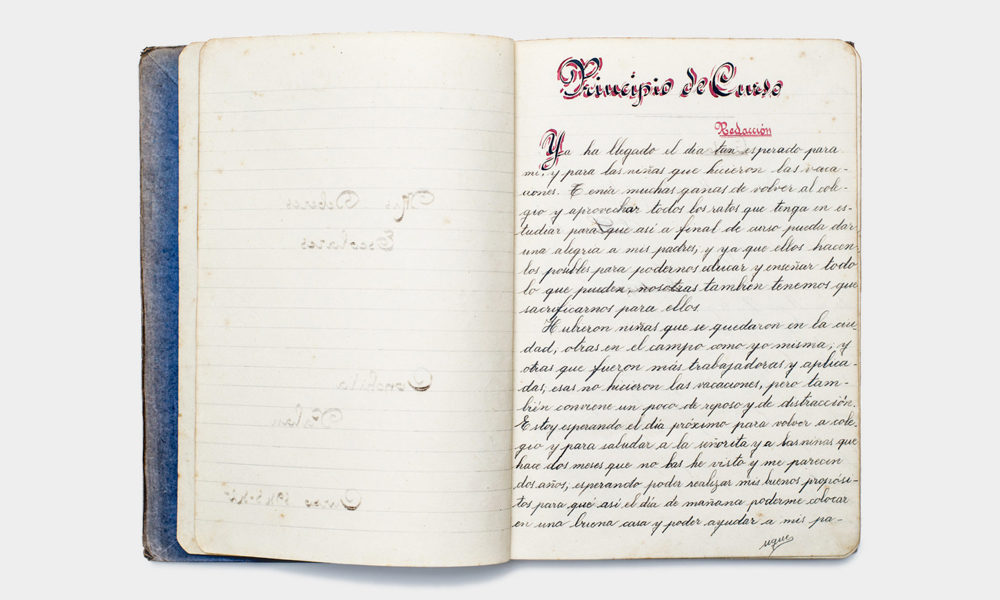 Mis Deberes
Escolares
Conchita
Curso
Principio de Curso
Redacción
Ya ha llegado el dia tan esperado para
mi, y para las niñas que hicieron las vaca-
ciones. Tenia muchas ganas de volver al cole-
gio y aprovechar todos los ratos que tenga en es-
tudiar para que asi a final de curso pueda dar
una alegria a mis padres, y ya que ellos hacen
los posibles para podernos educar y enseñar todo
lo que pueden, nosotras también tenemos que
sacrificarnos para ellos.
Hubieron niñas que se quedaron en la ciu-
dad, otras en el campo como yo misma; y
otras que fueron más trabajadoras y aplica-
das, esas no hicieron las vacaciones, pero tam-
bién conviene un poco de reposo y de distracción.
Estoy esperando el dia próximo para volver a cole-
gio y para saludar a la señorita y a las niñas que
hace dos meses que no las he visto y me parecen
dos años, esperando poder realizar mis buenos propósi-
tos para que asi el dia de mañana poderme colocar
en una buena casa y poder ayudar a mis pa-
sigue